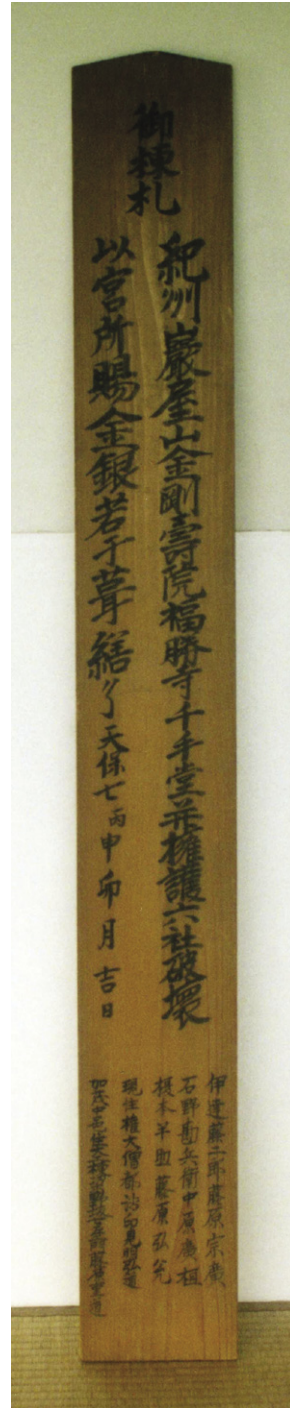 御棟札
紀州巖屋山金剛壽院福勝寺千手堂并擁護六社破壞
以宮所賜金銀若干葺繕 了天保七丙申卯月吉日
伊達藤二郎藤原宗廣
石野勘兵衛中原廣
榎本半助藤原弘
現住権大僧都法印